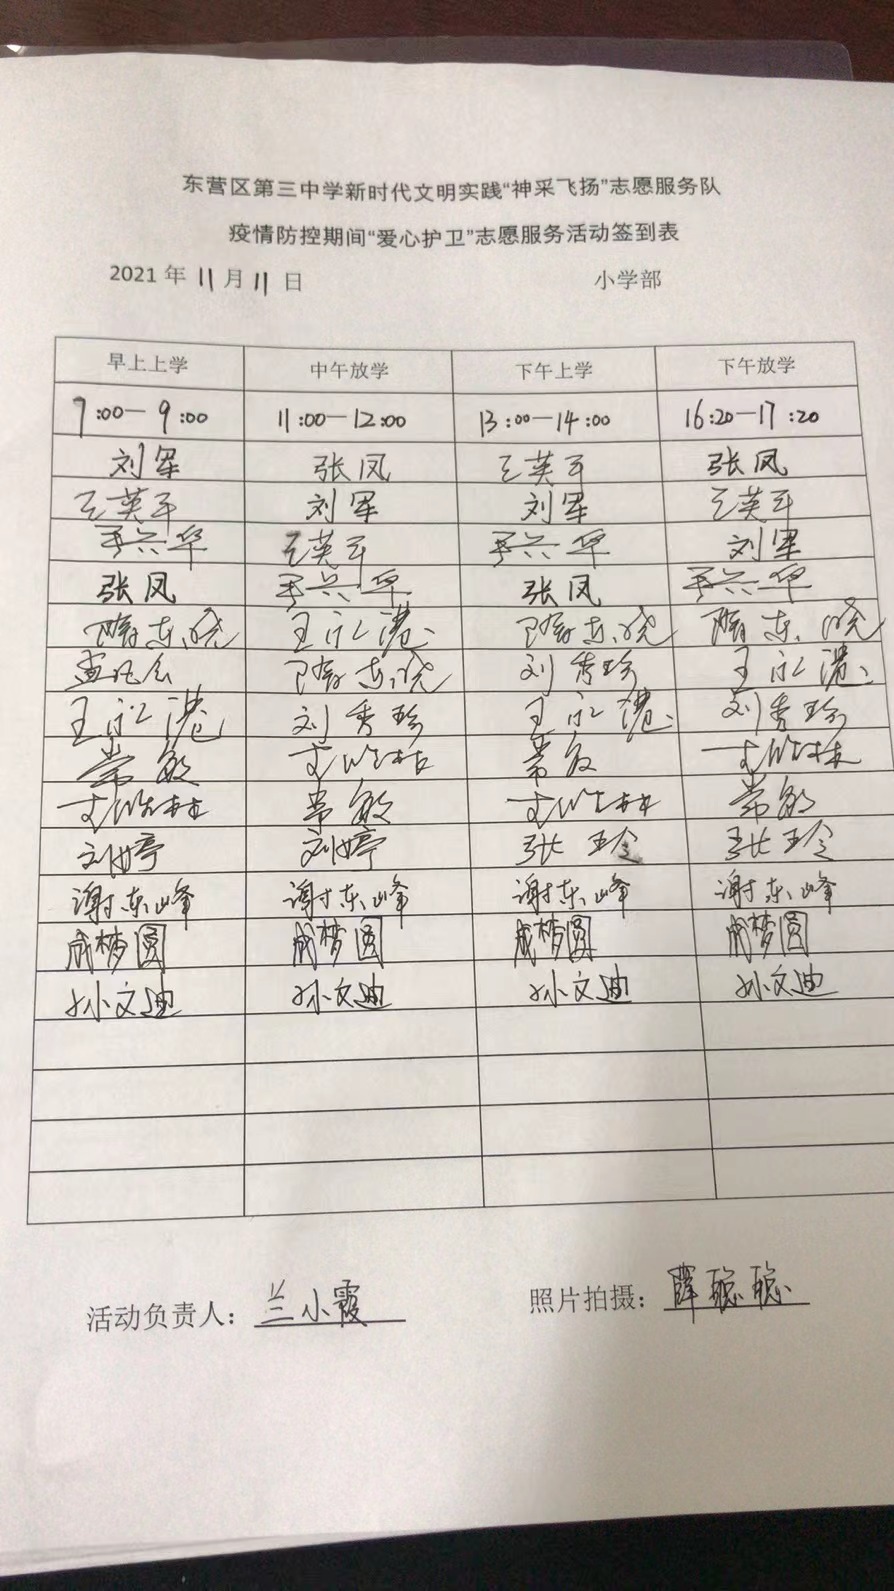 东营区第三中学新时代文明实践“神采飞扬”志愿服务队
疫情防控期间“爱心护卫”志愿服务活动签到表
2021 年 11 月 11 日 小学部
早上上学 中午放学 下午上学 下午放学
7:00—9:00 11:00—12:00 13:00—14:00 16:20—17:20
刘军 张凤 王英军 张凤
王英军 刘军 刘军 王英军
王英军 刘军
张凤 张凤
隋东晓 王永港 隋东晓 隋东晓
隋东晓 刘秀珍 王永港
王永港 刘秀珍 王永港 刘秀珍
常敏 常敏
常敏 常敏
刘婷 刘婷 张玲 张玲
谢东峰 谢东峰 谢东峰 谢东峰
成梦圆 成梦圆 成梦圆 成梦圆
孙文迪 孙文迪 孙文迪 孙文迪
活动负责人：兰小霞 照片拍摄：薛聪聪